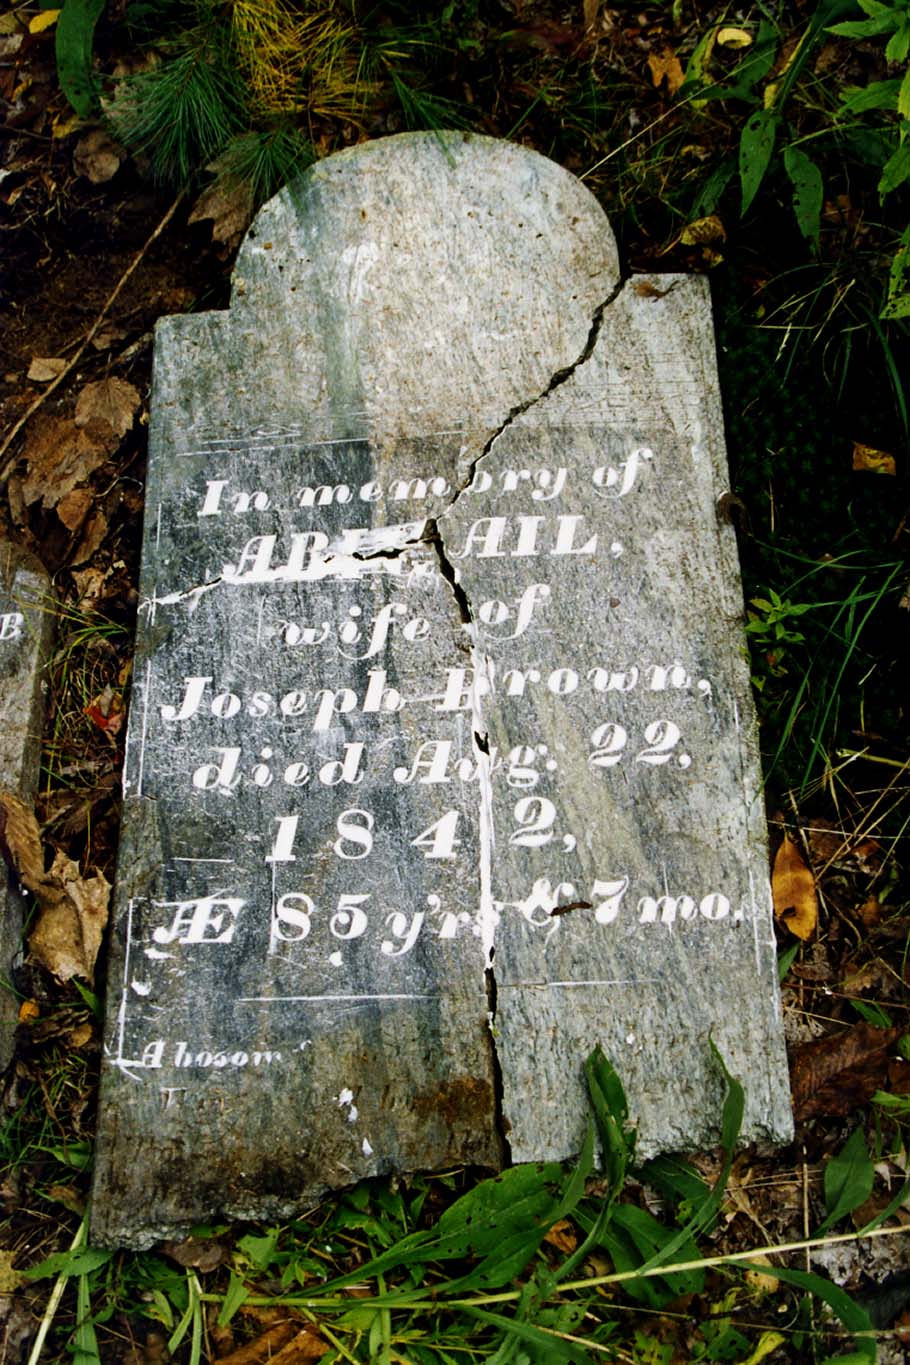 In memory of
ABIGAIL,
wife of
Joseph Brown,
died Aug. 22,
1842,
Æ 85 y'rs & 7 mo.
A bosom
B